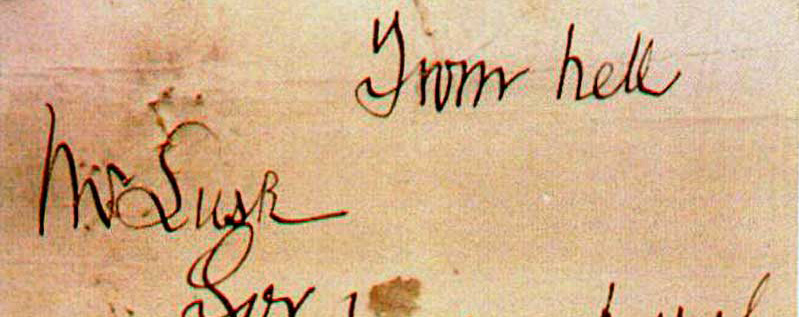 From hell
Mr Lusk
Sor